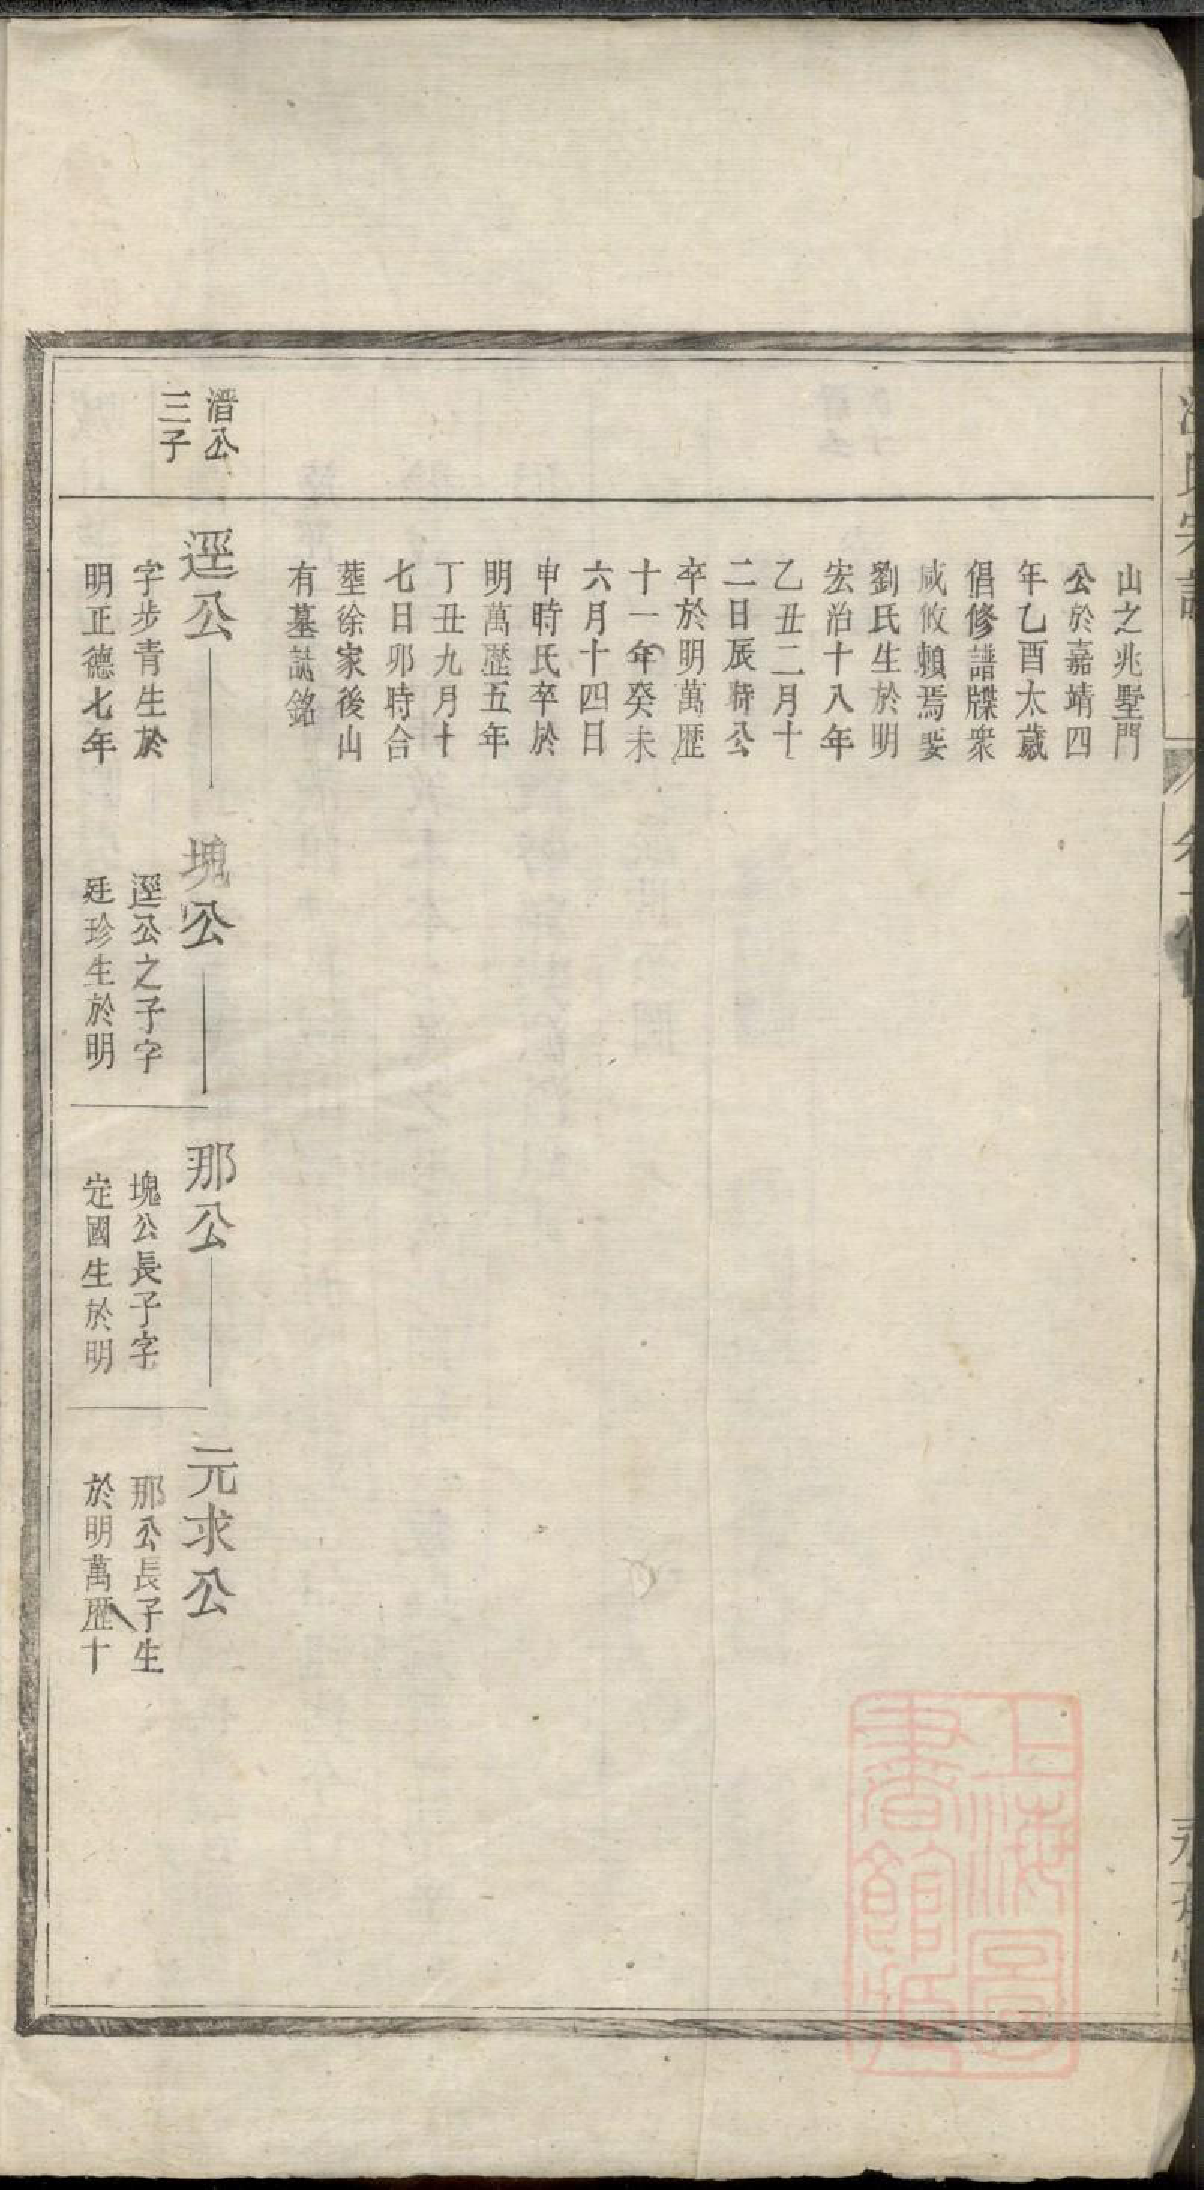 山之兆墅門
公於嘉靖四
年乙酉太歲
倡修譜牒衆
咸攸賴焉娶
劉氏生於明
宏治十八年
乙丑二月十
二日辰時公
卒於明萬歷
十一年癸未
六月十四日
申時氏卒於
明萬歷五年
丁丑九月十
七日卯時合
塟徐家後山
有墓誌銘
濳公
三子
逕公
字步青生於
明正德七年
塊公
逕公之子字
廷珍生於明
那公
塊公長子字
定國生於明
元求公
那公長子生
於明萬歷十
上海圖
書館藏